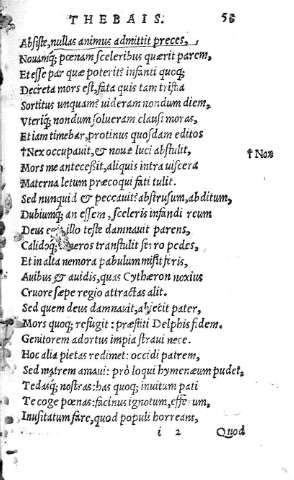 THEBAIS. 58
Absiste, nullas animus admittit preces,
Nouamq; pœnam sceleribus quærit parem,
Et esse par quæ poterit? infanti quoq;
Decreta mors est, fata quis tam tristia
Sortitus unquam? uideram nondum diem,
Vteriq; nondum solueram clausi moras,
Et iam timebar, protinus quosdam editos
†Nex occupauit, & nouæ luci abstulit,
† Nox
Mors me antecessit, aliquis intra uiscera
Materna letum præcoqui fati tulit.
Sed nunquid & peccauit? abstrusum, abditum,
Dubiumq; an essem, sceleris infandi reum
Deus illo teste damnauit parens,
Calidoq; teneros transtulit ferro pedes,
Et in alta nemora pabulum misit feris,
Auibus & auidis, quas Cythæron noxius
Cruore sæpe regio attractas alit.
Sed quem deus damnauit, abiecit pater,
Mors quoq; refugit: præstiti Delphis fidem.
Genitorem adortus impia straui nece.
Hoc alia pietas redimet: occidi patrem,
Sed matrem amaui: prò loqui hymenæum pudet,
Tedasq; nostras: has quoq; inuitum pati
Te coge pœnas: facinus ignotum, efferum,
Inusitatum fare, quod populi horreant,
i 2 Quod